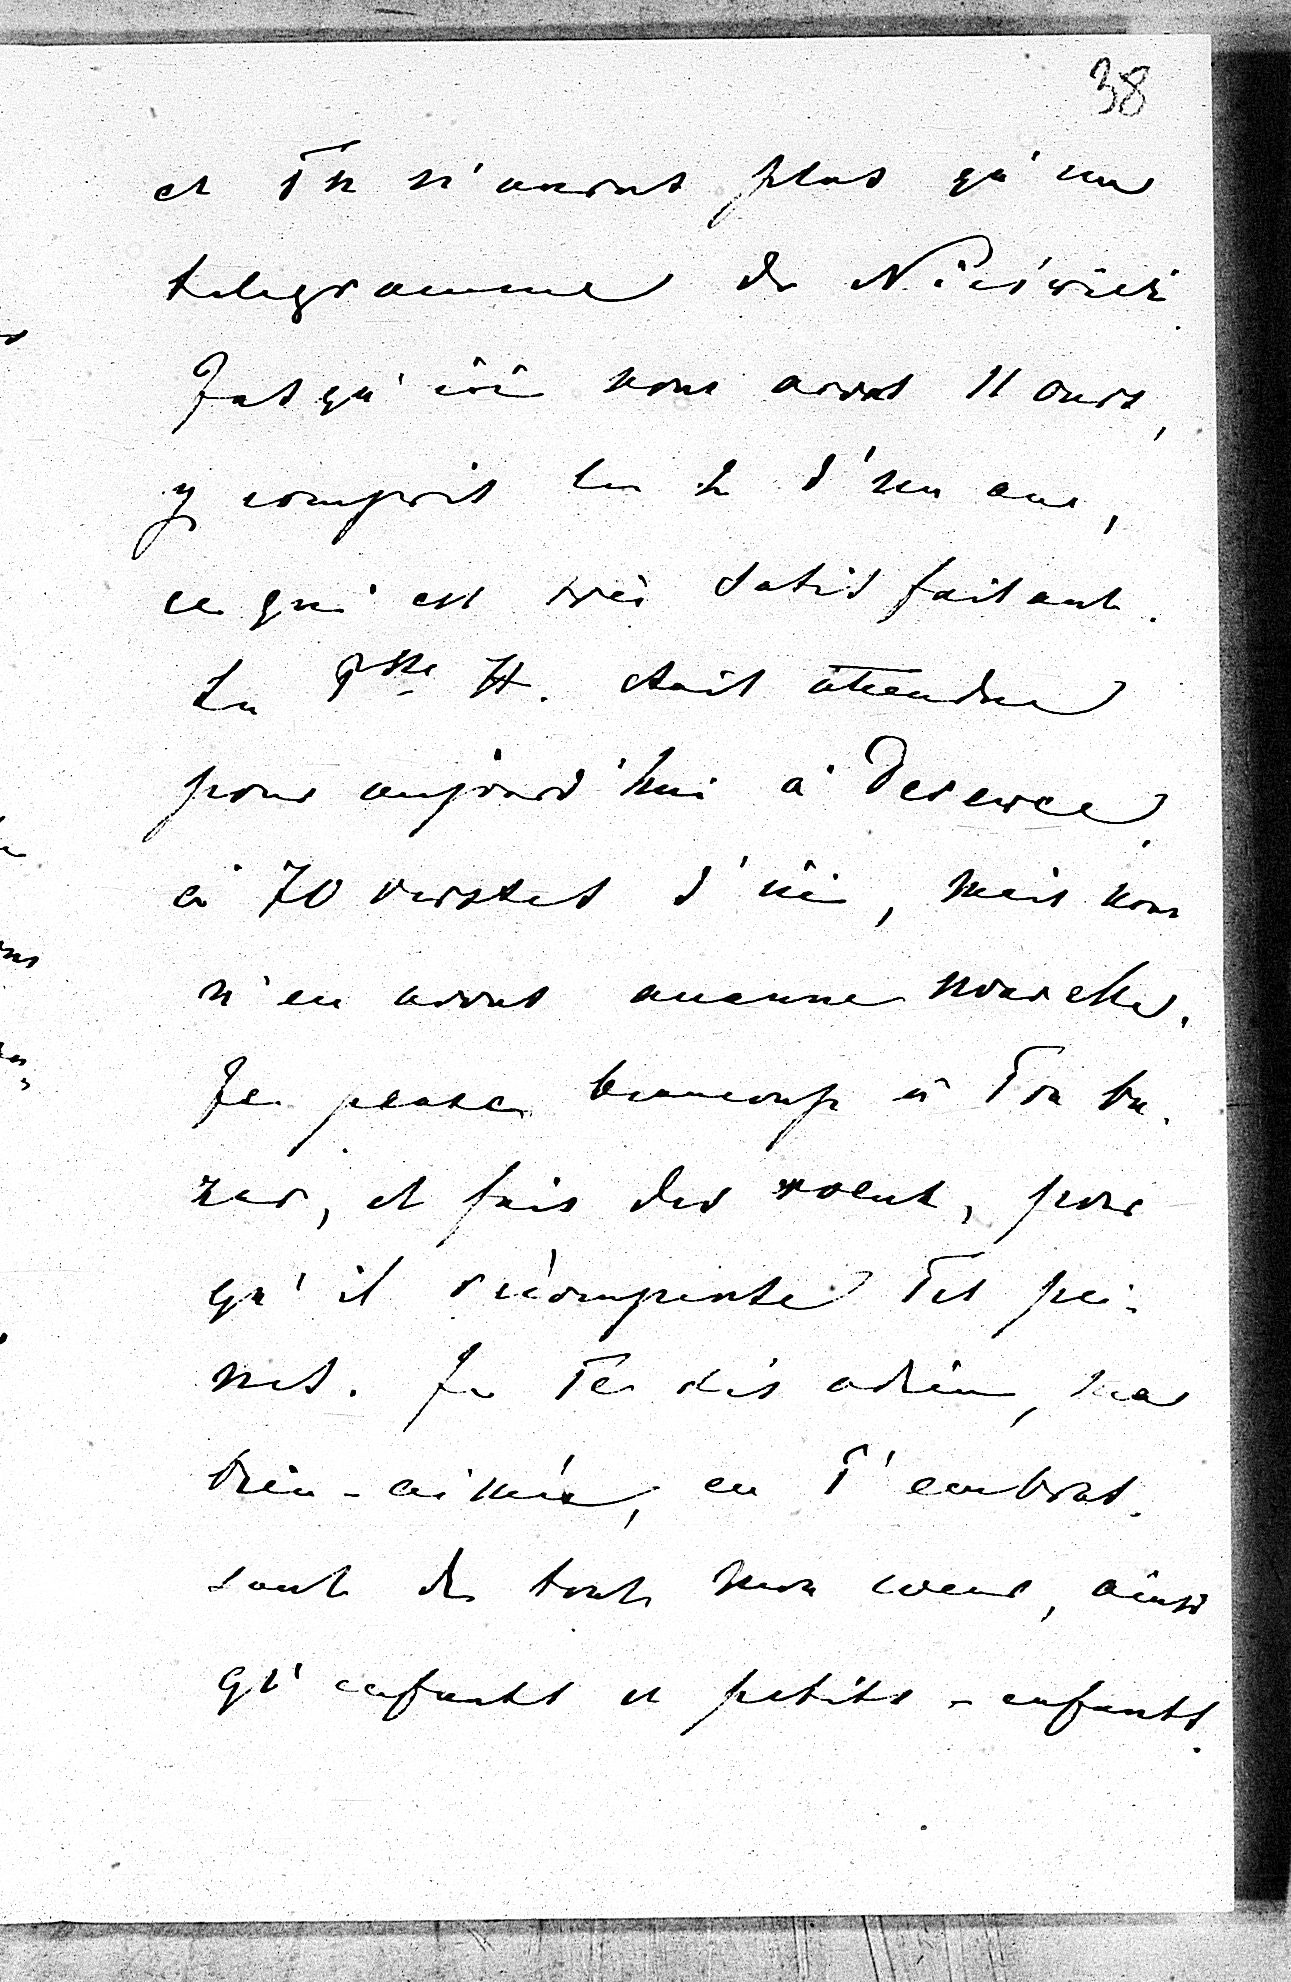 38
et Tu n'auras plus qu'un
telegramme de Nieświeź.
Jusqu'ici nous avons 11 ours,
y compris les 2 d'un an,
ce qui est très satisfaisant.
La Psse H. était attendue
pour aujourd'hui à Derewee,
à 70 verstes d'ici, mais nous
n'en avons aucune nouvelle.
Je pense beaucoup à Ton ba-
zar, et fais des voeux, pour
qu'il récompense Tes pei-
nes. Je Te dis adieu, ma
bien-aimée, en T'embras-
sant de tout mon coeur, ainsi
qu'enfants et petits-enfants.